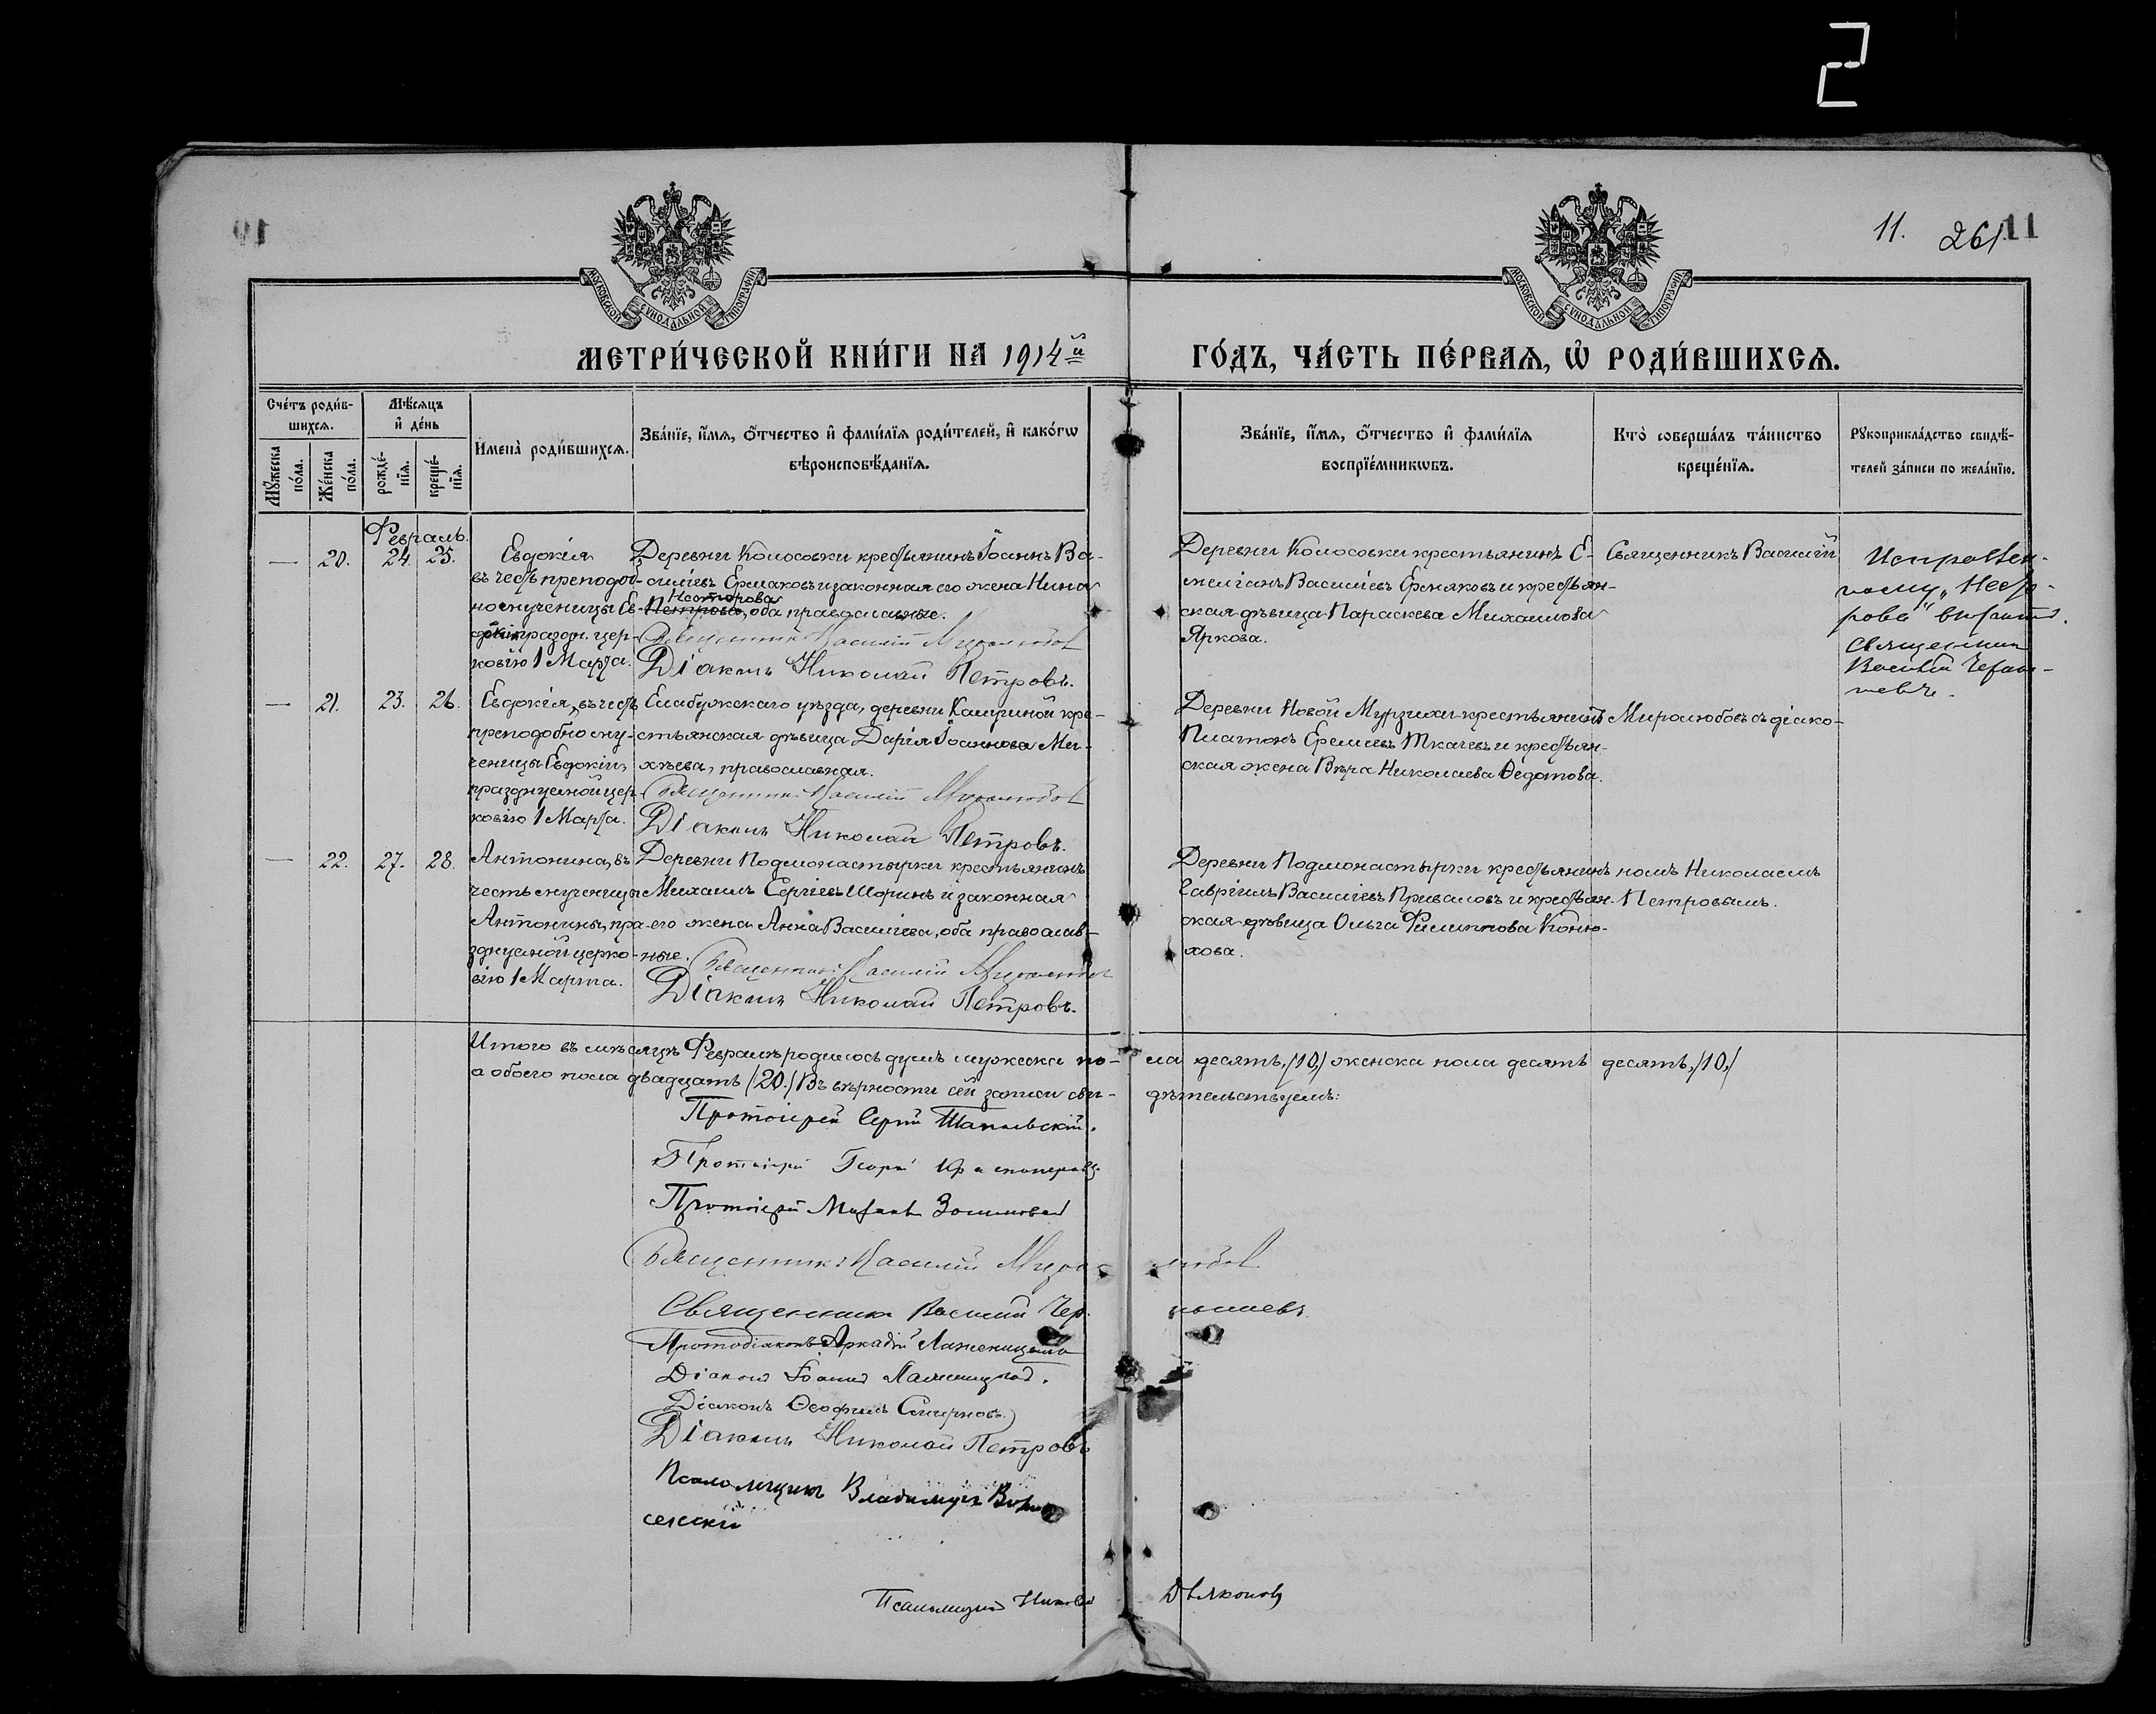 2
11. 261. 11
МОСКОВСКОЙ СѴНОДАЛЬНОЙ ТИПОГРАФІИ
МОСКОВСКОЙ СѴНОДАЛЬНОЙ ТИПОГРАФІИ
МЕТРИ́ЧЕСКОЙ КНИ́ГИ НА 1914й ГО́ДЪ, ЧА́СТЬ ПЕ́РВАѦ, Ѡ҆ РОДИ́ВШИХСѦ.
Сче́тъ роди́в-
шихсѧ.
Мꙋ́жеска
по́ла.
Же́нска
по́ла.
Мѣ́сѧцъ
и҆ де́нь
рожде́-
нїѧ.
креще́-
нїѧ.
И҆мена̀ роди́вшихсѧ.
Зва́нїе, и҆́мѧ, ѻ҆́тчество и҆ фами́лїѧ роди́телей, и҆ како́гѡ
вѣроисповѣ́данїѧ.
Зва́нїе, и҆́мѧ, ѻ҆́тчество и҆ фами́лїѧ
воспрїе́мникѡвъ.
Кто̀ соверша́лъ та́инство
креще́нїѧ.
Рꙋкоприкла́дство свидѣ́-
телей за́писи по жела́нїю.
Февраль.
— 20. 24. 25.
Евдокія
въ честь преподоб-
номученицы Ев-
докіи праздн. цер-
ковію 1 Марта.
Деревни Колосовки крестьянинъ Іоаннъ Ва-
силіевъ Ермаковъ и законная его жена Нина
Несторова
Петрова, оба православные.
Священникъ Василій Миролюбовъ
Діаконъ Николай Петровъ.
Деревни Колосовки крестьянинъ Е-
меліанъ Василіевъ Ермаковъ и крестьян-
ская дѣвица Параскева Михаилова
Яркова.
Священникъ Василій
Исправлен-
ному „Несто-
рова" вѣрить.
Священникъ
Василій Черны-
шевъ.
— 21. 23. 26.
Евдокія, въ честь
преподобному-
ченицы Евдокіи,
празднуемой цер-
ковію 1 Марта.
Елабужскаго уѣзда, деревни Кашриной кре-
стьянская дѣвица Дарія Іоаннова Ми-
хѣева, православная.
Священникъ Василій Миролюбовъ
Діаконъ Николай Петровъ.
Деревни Новой Мурзихи крестьянинъ
Платонъ Еремѣевъ Ткачевъ и крестьян-
ская жена Вѣра Николаева Ѳедотова.
Миролюбовъ съ діако-
— 22. 27. 28.
Антонина, въ
честь мученицы
Антонины, пра-
зднуемой церко-
вію 1 Марта.
Деревни Подмонастырки крестьянинъ
Михаилъ Сергіевъ Шоринъ и законная
его жена Анна Василіева, оба православ-
ные. Священникъ Василій Миролюбовъ
Діаконъ Николай Петровъ.
Деревни Подмонастырки крестьянинъ
Гавріилъ Василіевъ Приваловъ и крестьян-
ская дѣвица Ольга Филиппова Коню-
хова.
номъ Николаемъ
Петровымъ.
Итого въ мѣсяцѣ Февралѣ родилось душъ мужеска по- ла десять, /10,/ женска пола десять десять, /10,/
а обоего пола двадцать /20./ Въ вѣрности сей записи сви- дѣтельствуемъ:
Протоіерей Сергій
Протоіерей Георгій
Протоіерей Михаилъ
Священникъ Василій Миролюбовъ
Священникъ Василій Чернышевъ
Протодіаконъ Аркадій Лаженицынъ
Діаконъ Іоаннъ
Діаконъ Ѳеофилъ Смирновъ
Діаконъ Николай Петровъ
Псаломщикъ Владимиръ Возне-
сенскій
Псаломщикъ Николай Дьяконовъ